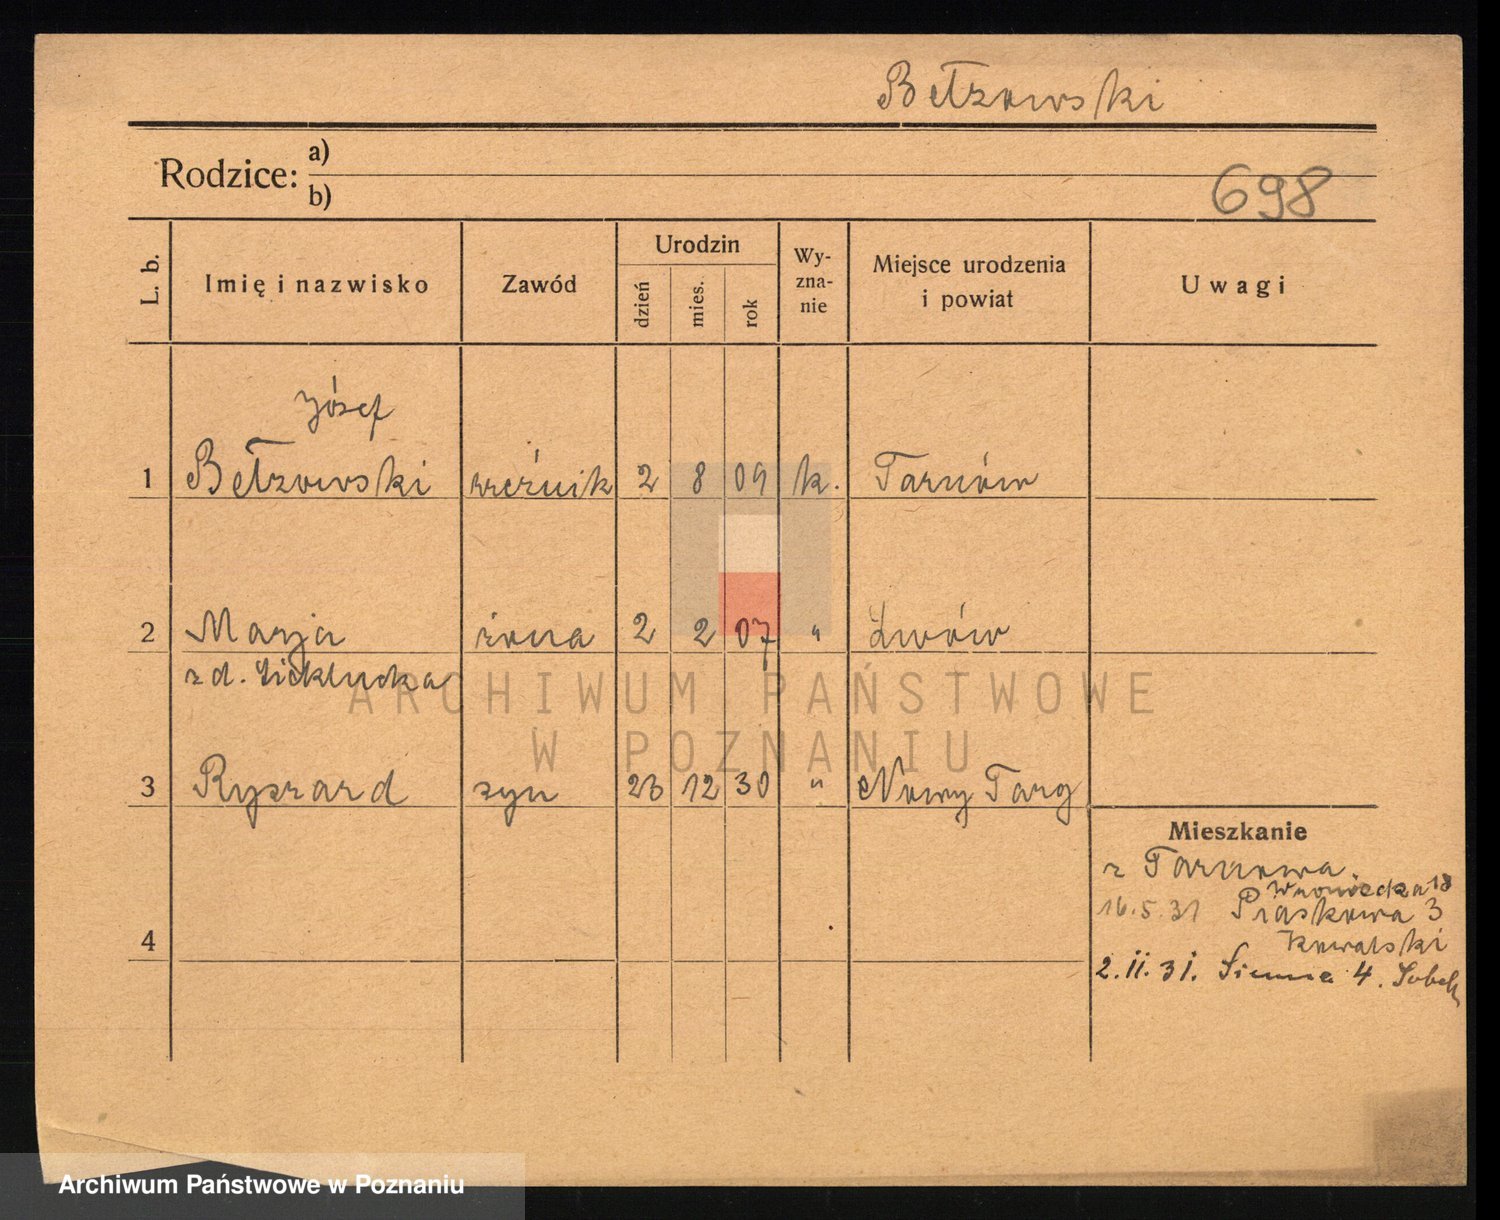 Bełzowski
Rodzice:
a)
b)
698
L. b.
Imię i nazwisko
Zawód
Urodzin
dzień
mies.
rok
Wy-
zna-
nie
Miejsce urodzenia
i powiat
Uwagi
Józef
1 Bełzowski rzeźnik 2 8 09 k. Tarnów
2 Marja żona 2 2 07 " Lwów
z d.
3 Ryszard syn 23 12 30 " Nowy Targ
4
Mieszkanie
z Tarnowa
Wroniecka 18
16.5.31 Piaskowa 3
Kowalski
2.II.31. Sienna 4. Sobek
ARCHIWUM PAŃSTWOWE
W POZNANIU
Archiwum Państwowe w Poznaniu